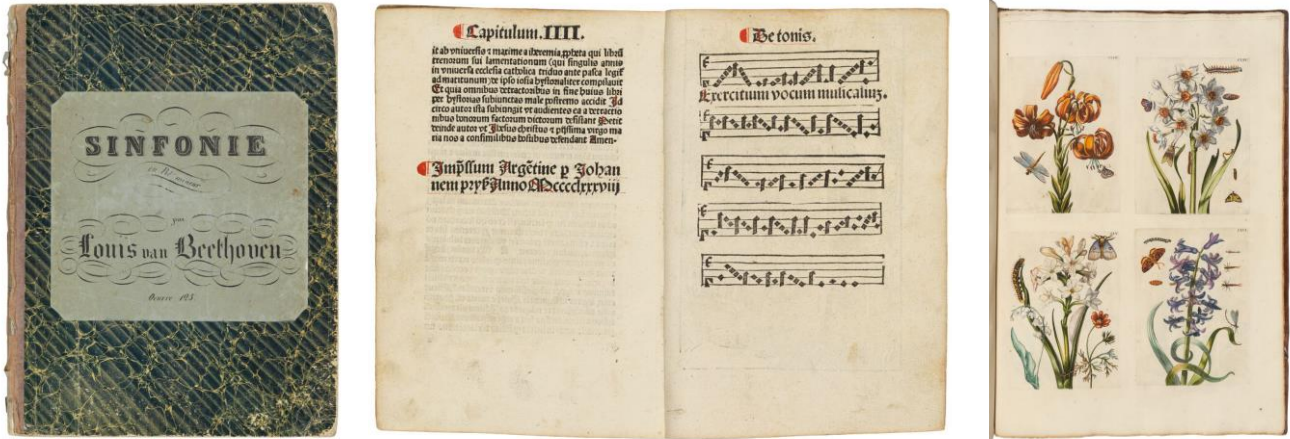 SINFONIE
von
Louis van Beethoven
Oeuvre 125
Capitulum. IIII.
it ab vniuersis ⁊ maxime a iheremia ꝓpheta qui librũ
trenorum sui lamentationum (qui singulis annis
in vniuersa ecclesia catholica triduo ante pasca legit̃
ad matutinum) de ipso iosia hystorialiter compilauit
Et quia omnibus detractoribus in fine huius libri
per hystorias subiunctas male postremo accidit Id
circo autor ista subiungit vt audientes ea a detractio
nibus bonorum factorum dictorum desistant Petit
deinde autor vt Ihesus christus ⁊ pijssima virgo ma
ria nos a consimilibus hostibus defendant Amen.
Imp̃ssum Argẽtine ꝑ Johan
nem pryß Anno Mcccclxxxviij
De tonis.
Exercitium vocum musicaliuꝫ.